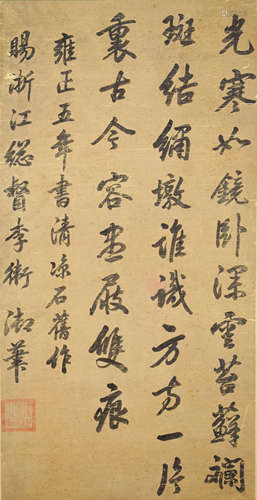 光寒如鏡臥深雲苔蘚斕
斑結繡墩誰識方方一片
裏古今容盡屐雙痕
雍正五年書清涼石舊作
賜浙江總督李衛御筆